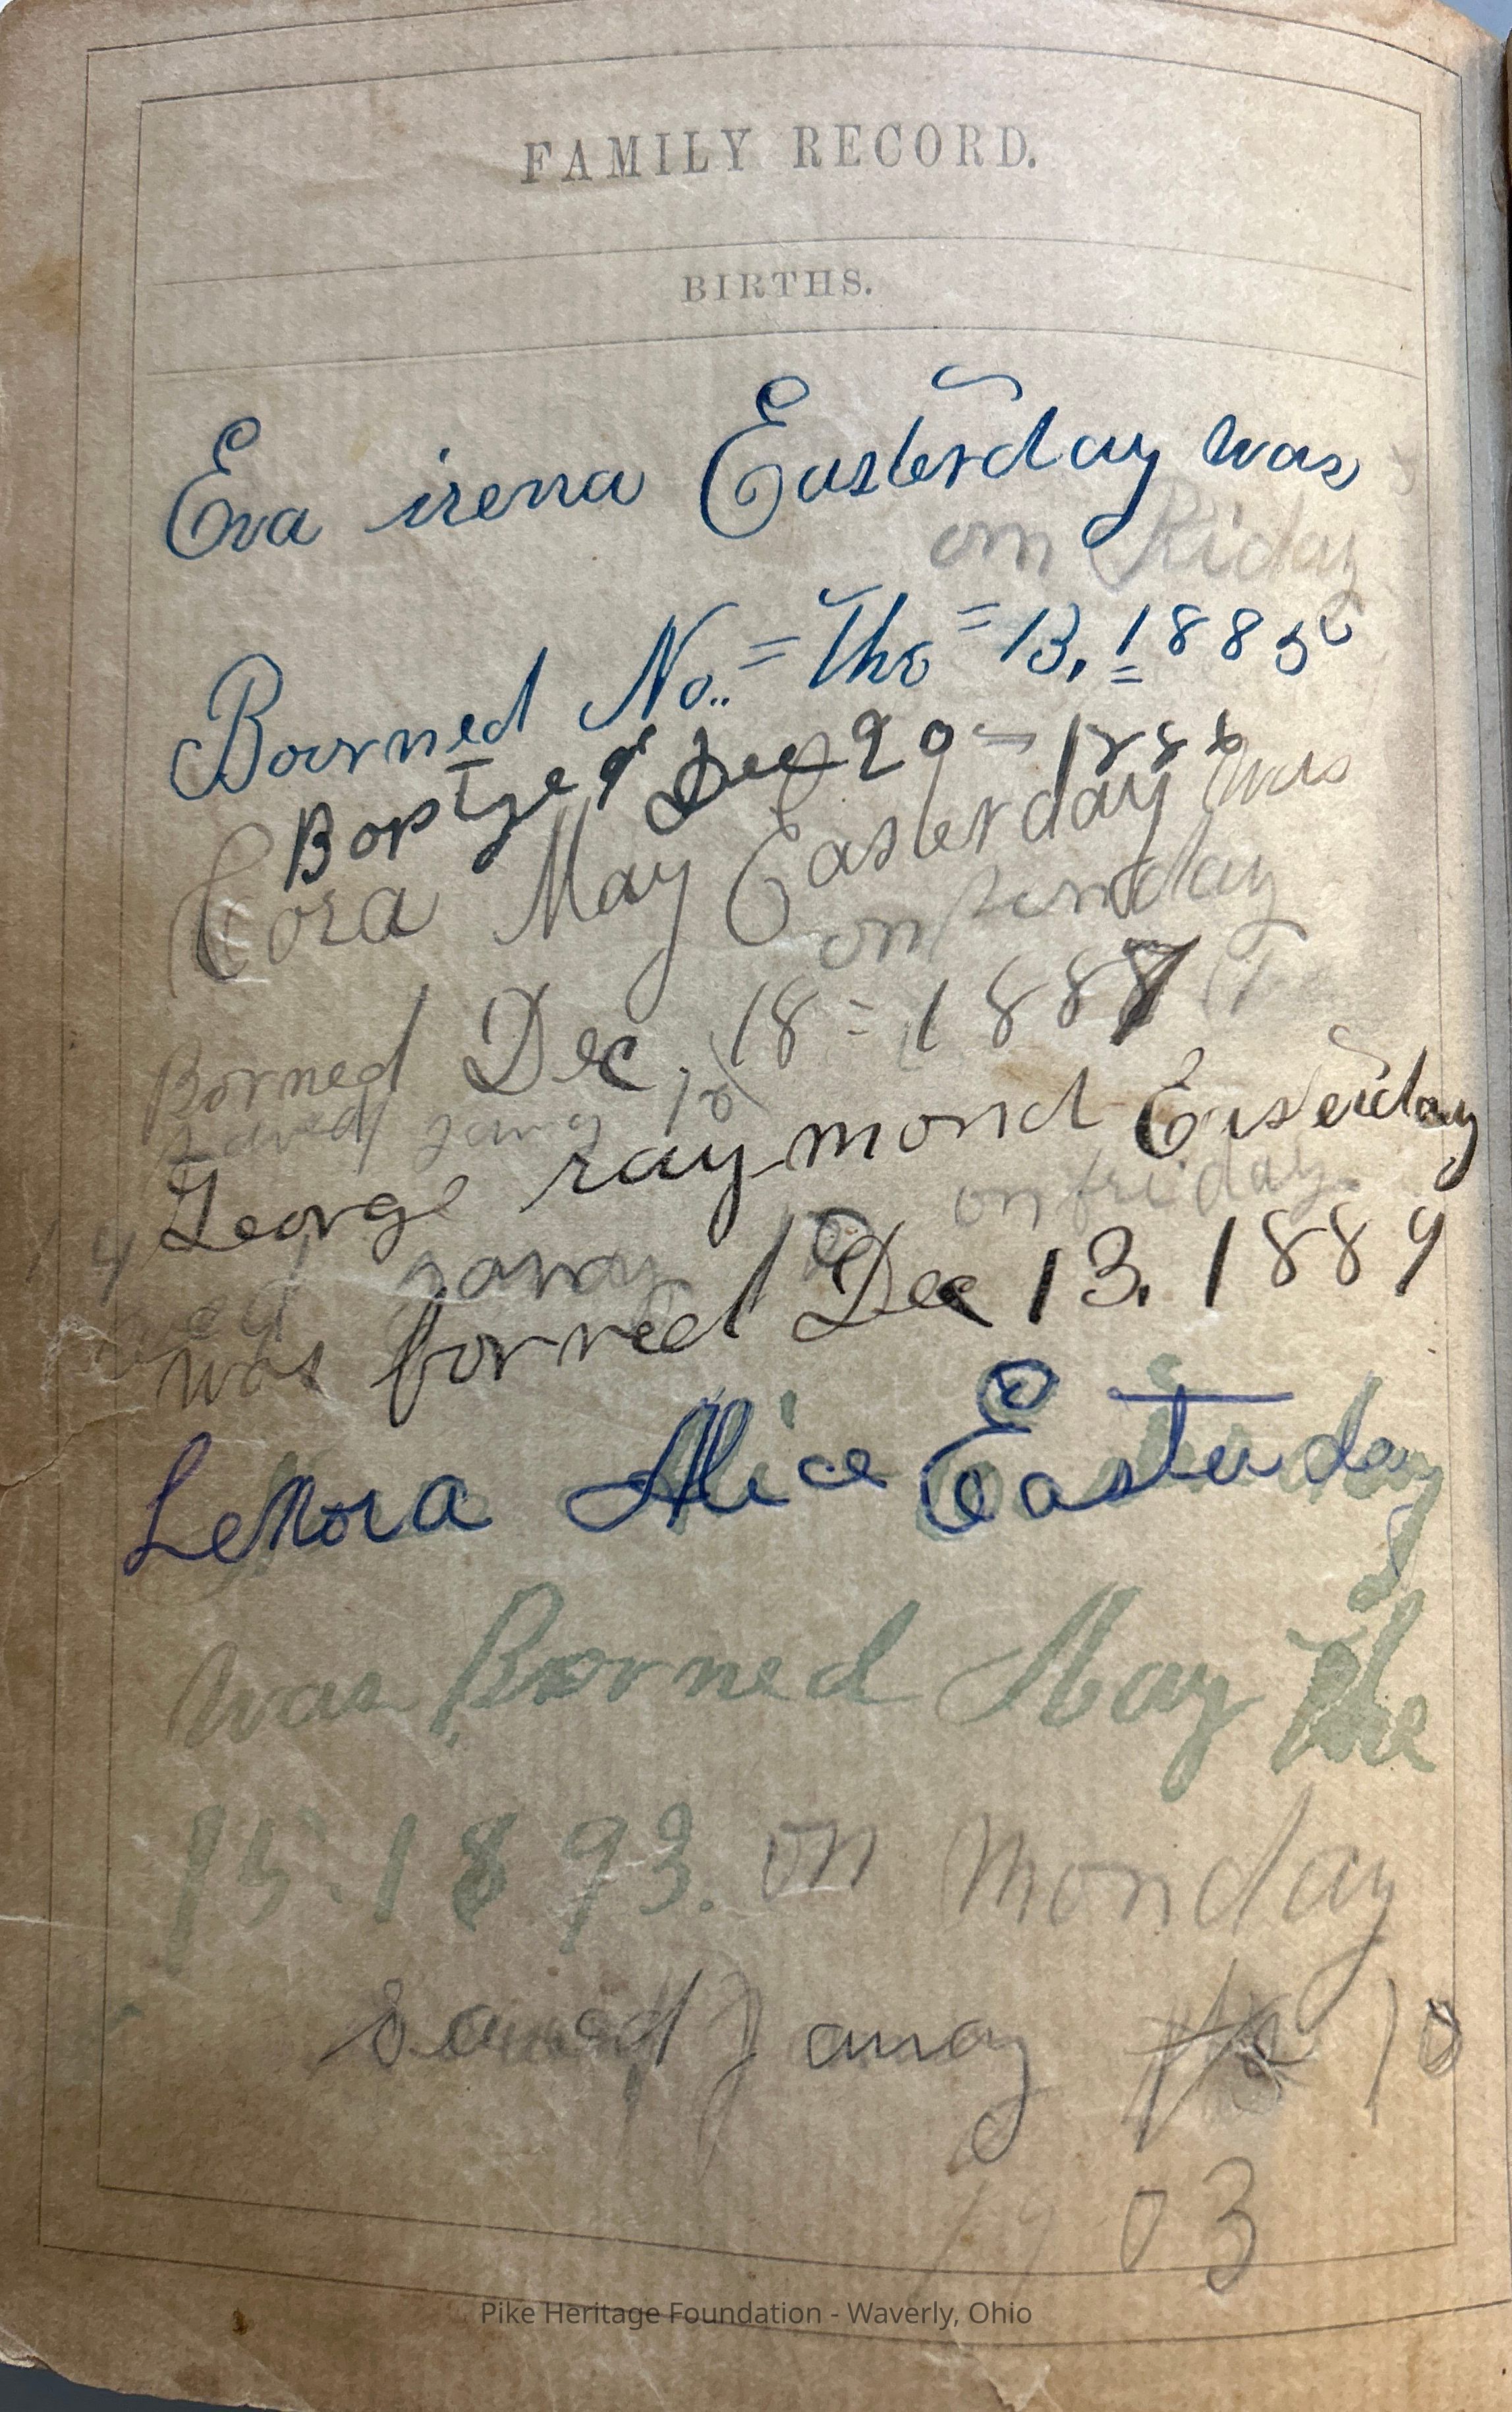 FAMILY RECORD.
BIRTHS.
Eva irena Easterday was
on Friday
Boorned No.. = The = 13, 1885
Baptyed Dec 29 - 1886
Cora May Easterday was
on Sunday
Borned Dec, 18 = 1887
saved 18
George raymond Easterday
on friday
saved janay
was borned Dec 13, 1889
LeNora Alice Easterday
was Borned May the
15. 1893. on monday
saved Janay the 18
1903
Pike Heritage Foundation - Waverly, Ohio